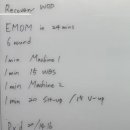 Recovery WOD
EMOM in 24 mins
6 round
1 min Machine 1
1 min 15 WBS
1 min Machine 2
1 min 20 Sit-up / 15 V-up
Rxd 20/14 lb